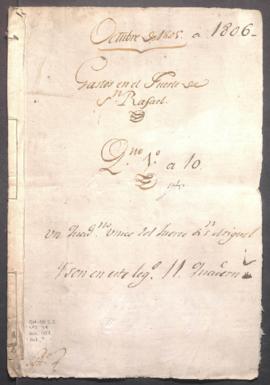 Octubre de 1805 a 1806
Gastos en el Fuerte de
Sn. Rafael.
Qno. 1º a 10.
Un Quadno. unico del fuerte Sn. Miguel
Y son en este lego. 11. Quadern